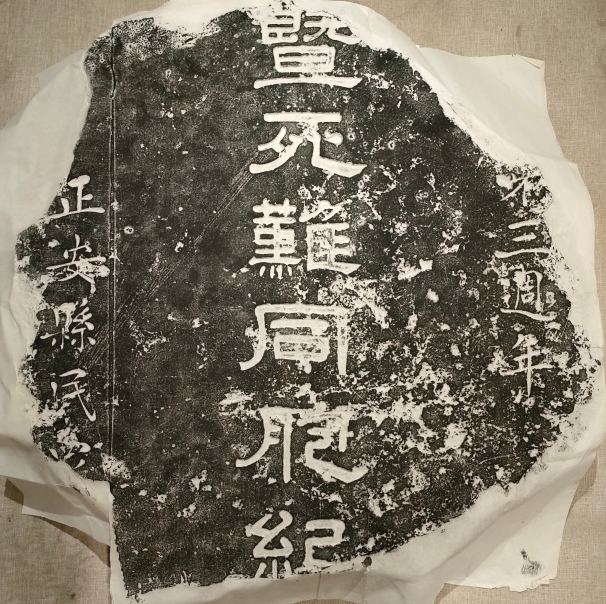 第三週年
暨死難同胞紀
正安縣民